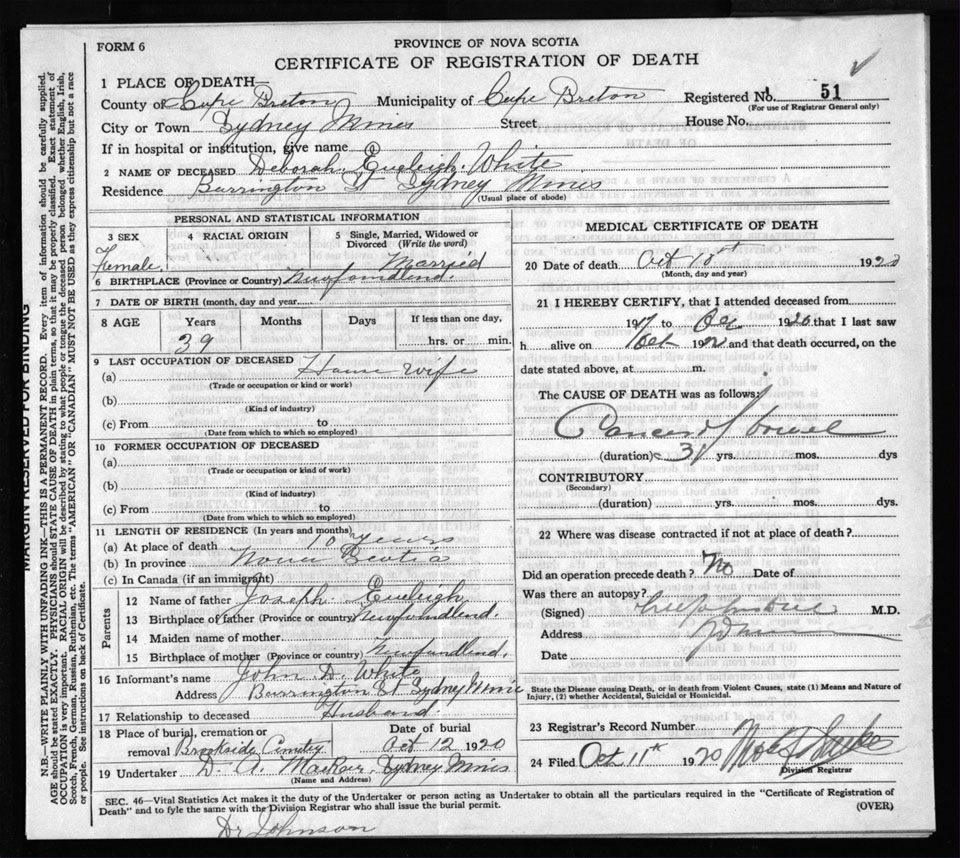 FORM 6
PROVINCE OF NOVA SCOTIA
CERTIFICATE OF REGISTRATION OF DEATH
1 PLACE OF DEATH—
County of Cape Breton Municipality of Cape Breton Registered No. 51
(For use of Registrar General only)
City or Town Sydney Mines Street House No.
If in hospital or institution, give name
2 NAME OF DECEASED Deborah Eveleigh White
Residence Barrington St Sydney Mines
(Usual place of abode)
PERSONAL AND STATISTICAL INFORMATION
3 SEX 4 RACIAL ORIGIN 5 Single, Married, Widowed or Divorced (Write the word)
Female. Married
6 BIRTHPLACE (Province or Country) Newfoundland.
7 DATE OF BIRTH (month, day and year
8 AGE Years Months Days If less than one day,
39 hrs. or min.
9 LAST OCCUPATION OF DECEASED
(a) House wife
(Trade or occupation or kind or work)
(b)
(Kind of industry)
(c) From to
(Date from which to which so employed)
10 FORMER OCCUPATION OF DECEASED
(a)
(Trade or occupation or kind of work)
(b)
(Kind of industry)
(c) From to
(Date from which to which so employed)
11 LENGTH OF RESIDENCE (In years and months)
(a) At place of death 10 years
(b) In province Nova Scotia
(c) In Canada (if an immigrant)
Parents
12 Name of father Joseph Eveleigh
13 Birthplace of father (Province or country) Newfoundland.
14 Maiden name of mother
15 Birthplace of mother (Province or country) Newfundland.
16 Informant's name John D. White
Address Barrington St Sydney Mines
17 Relationship to deceased Husband
18 Place of burial, cremation or removal Brookside Cemetry Date of burial Oct 12 1920
19 Undertaker D. A. Sydney Mines
(Name and Address)
MEDICAL CERTIFICATE OF DEATH
20 Date of death Oct 192
(Month, day and year)
21 I HEREBY CERTIFY, that I attended deceased from
19 to 1920 that I last saw
h alive on Oct 19 and that death occurred, on the
date stated above, at m.
The CAUSE OF DEATH was as follows:
Cancer of bowel
(duration) yrs. mos. dys
CONTRIBUTORY
(Secondary)
(duration) yrs. mos. dys.
22 Where was disease contracted if not at place of death?
Did an operation precede death? No Date of
Was there an autopsy?
(Signed) M.D.
Address
Date
State the Disease causing Death, or in death from Violent Causes, state (1) Means and Nature of
Injury, (2) whether Accidental, Suicidal or Homicidal.
23 Registrar's Record Number
24 Filed Oct 11th 1920
Division Registrar
SEC. 46—Vital Statistics Act makes it the duty of the Undertaker or person acting as Undertaker to obtain all the particulars required in the "Certificate of Registration of
Death" and to fyle the same with the Division Registrar who shall issue the burial permit. (OVER)
Dr Johnson
MARGIN RESERVED FOR BINDING
N.B.—WRITE PLAINLY WITH UNFADING INK—THIS IS A PERMANENT RECORD. Every item of information should be carefully supplied.
AGE should be stated EXACTLY. PHYSICIANS should STATE CAUSE OF DEATH in plain terms, so that it may be properly classified. Exact statement of
OCCUPATION is very important. RACIAL ORIGIN will be described by stating to what people or tongue the deceased person belonged whether English, Irish,
Scotch, French, German, Russian, Ruthenian, etc. The terms "AMERICAN" OR "CANADIAN" MUST NOT BE USED as they express citizenship but not a race
or people. See instructions on back of Certificate.